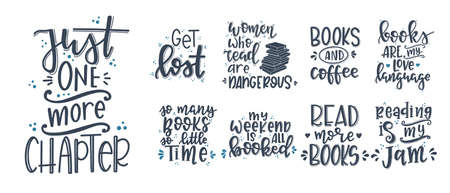 just
ONE
more
CHAPTER
GET
lost
women
who
read
are
DANGEROUS
BOOKS
AND
coffee
books
ARE MY
LOVE
language
so many
BOOKS
so little
TIME
my
WEEKEND
IS ALL
booked
READ
more
BOOKS
Reading
IS my
jam